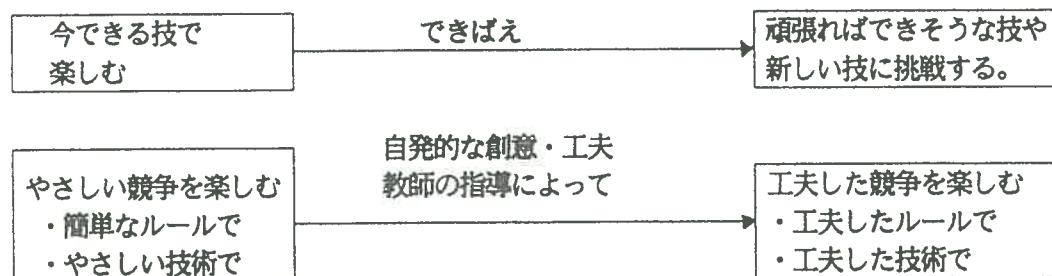 今できる技で
楽しむ
できばえ
頑張ればできそうな技や
新しい技に挑戦する。
やさしい競争を楽しむ
・簡単なルールで
・やさしい技術で
自発的な創意・工夫
教師の指導によって
工夫した競争を楽しむ
・工夫したルールで
・工夫した技術で